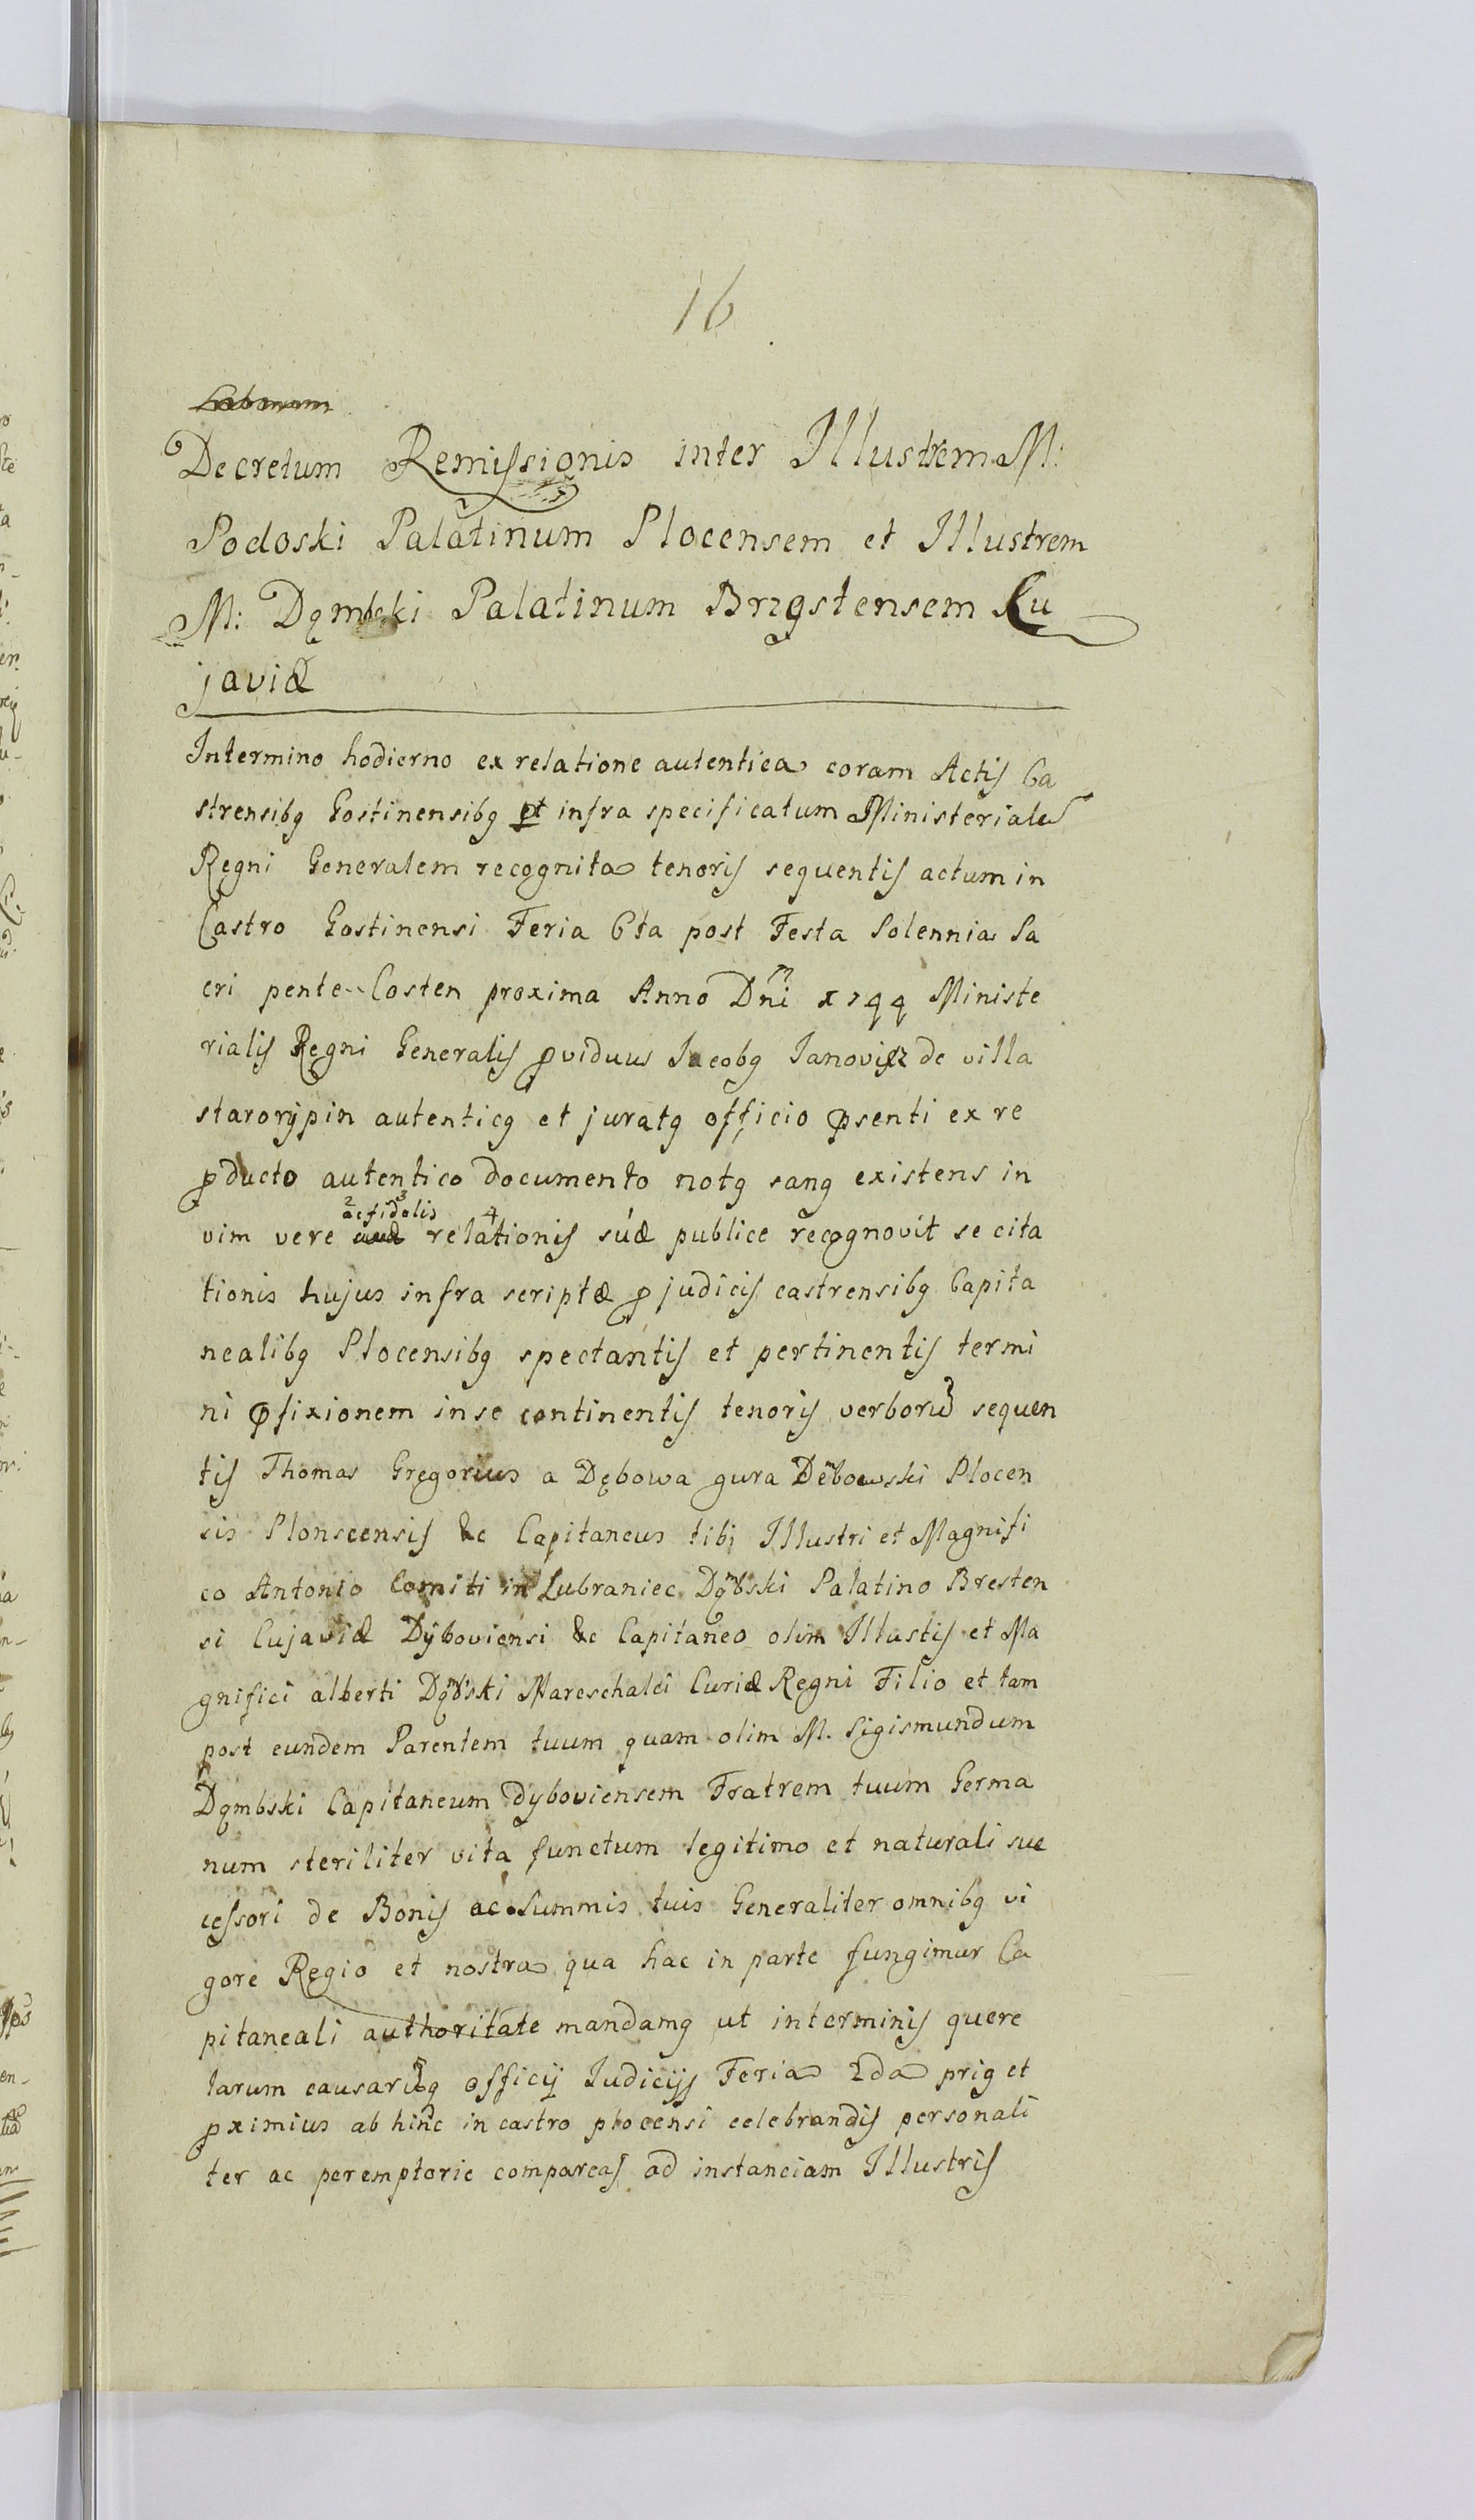 16
Decretum Remissionis inter Illustrem M:
Podoski Palatinum Plocensem et Illustrem
M: Dąmbski Palatinum Brzestensem Cu
javiæ
Intermino hodierno ex relatione autentica coram Actis Ca
strensibꝯ Gostinensibꝯ et infra specificatum Ministeriale
Regni Generalem recognita tenoris sequentis actum in
Castro Gostinensi Feria 6ta post Festa Solennia Sa
cri pente Costen proxima Anno Dni 1744 Ministe
rialis Regni Generalis ꝓviduus Jacobꝯ Janovicz de villa
starorypin autenticꝯ et juratꝯ officio p̄senti ex re
ꝓducto autentico documento notꝯ sanꝯ existens in
vim vere ac fidelis relationis suæ publice recognovit se cita
tionis hujus infra scriptæ ꝓ judicis castrensibꝯ Capita
nealibꝯ Plocensibꝯ spectantis et pertinentis termi
ni p̄fixionem in se continentis tenoris verborū sequen
tis Thomas Gregorius a Dębowa gura Dębowski Plocen
sis Plonscensis &c Capitaneus tibi Illustri et Magnifi
co Antonio Comiti in Lubraniec Dąbski Palatino Bresten
si Cujaviæ Dyboviensi &c Capitaneo olim Illustis et Ma
gnifici alberti Dąbski Mareschalci Curiæ Regni Filio et tam
post eundem Parentem tuum quam olim M. Sigismundum
Dąmbski Capitaneum dyboviensem Fratrem tuum Germa
num steriliter vita functum legitimo et naturali suc
cessori de Bonis ac Summis tuis Generaliter omnibꝯ vi
gore Regio et nostra qua hac in parte fungimur Ca
pitaneali authoritate mandamꝯ ut interminis quere
larum causarūꝗ officij Judicijs Feria 2da priꝯ et
ꝓximius ab hinc in castro plocensi celebrandis personali
ter ac peremptorie compareas ad instanciam Illustris